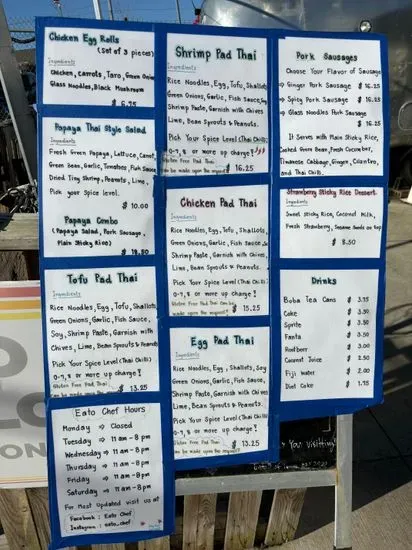 Chicken Egg Rolls
(Set of 3 pieces)
Ingredients
Chicken, Carrots, Taro, Green Onion
Glass Noodles, Black Mushroom
$ 6.75
Papaya Thai Style Salad
Ingredients
Fresh Green Papaya, Lettuce, Carrot,
Green Bean, Garlic, Tomatoes, Fish Sauce
Dried Tiny Shrimp, Peanuts, Lime,
Pick your spice level.
$ 10.00
Papaya Combo
(Papaya Salad, Pork Sausage,
Plain Sticky Rice)
Tofu Pad Thai
Ingredients
Rice Noodles, Egg, Tofu, Shallots
Green Onions, Garlic, Fish Sauce,
Soy, Shrimp Paste, Garnish with
Chives, Lime, Bean Sprouts & Peanuts
Pick Your Spice Level (Thai Chili)
0-9, 8 or more up charge!
Gluten Free Pad Thai
can be made upon the request
$ 13.25
Eato Chef Hours
Monday → Closed
Tuesday → 11 am - 8 pm
Wednesday → 11 am - 8 pm
Thursday → 11 am - 8 pm
Friday → 11 am - 8 pm
Saturday → 11 am - 8 pm
For Most Updated visit us at
Facebook : Eato Chef
Instagram : eato_chef
Shrimp Pad Thai
Ingredients
Rice Noodles, Egg, Tofu, Shallots
Green Onions, Garlic, Fish Sauce, Soy
Shrimp Paste, Garnish with Chives,
Lime, Bean Sprouts & Peanuts.
Pick Your Spice Level (Thai Chili)
0-9, 8 or more up charge!
Gluten Free Pad Thai
can be made upon the request
$ 16.25
Chicken Pad Thai
Ingredients
Rice Noodles, Egg, Tofu, Shallots,
Green Onions, Garlic, Fish Sauce
Soy, Shrimp Paste, Garnish with Chives,
Lime, Bean Sprouts & Peanuts.
Pick Your Spice Level (Thai Chili)
0-9, 8 or more up charge!
Gluten Free Pad Thai
can be made upon the request
$ 15.25
Egg Pad Thai
Ingredients
Rice Noodles, Egg, Shallots, Soy
Green Onions, Garlic, Fish Sauce,
Shrimp Paste, Garnish with Chives
Lime, Bean Sprouts & Peanuts.
Pick Your Spice Level (Thai Chili)
0-9, 8 or more up charge!
Gluten Free Pad Thai
can be made upon the request
$ 13.25
Pork Sausages
Choose Your Flavor of Sausage
⇒ Ginger Pork Sausage $ 16.25
⇒ Spicy Pork Sausage $ 16.25
⇒ Glass Noodles Pork Sausage
$ 16.25
It Serves with Plain Sticky Rice,
Green Bean, Fresh Cucumber,
Taiwanese Cabbage, Ginger, Cilantro,
and Thai Chili.
Strawberry Sticky Rice Dessert
Ingredients
Sweet Sticky Rice, Coconut Milk,
Fresh Strawberry, Sesame Seeds on top
$ 8.50
Drinks
Boba Tea Cans $ 3.75
Coke $ 3.50
Sprite $ 3.50
Fanta $ 3.50
Rootbeer $ 3.00
Coconut Juice $ 2.50
Fiji Water $ 2.00
Diet Coke $ 1.75
You Visiting